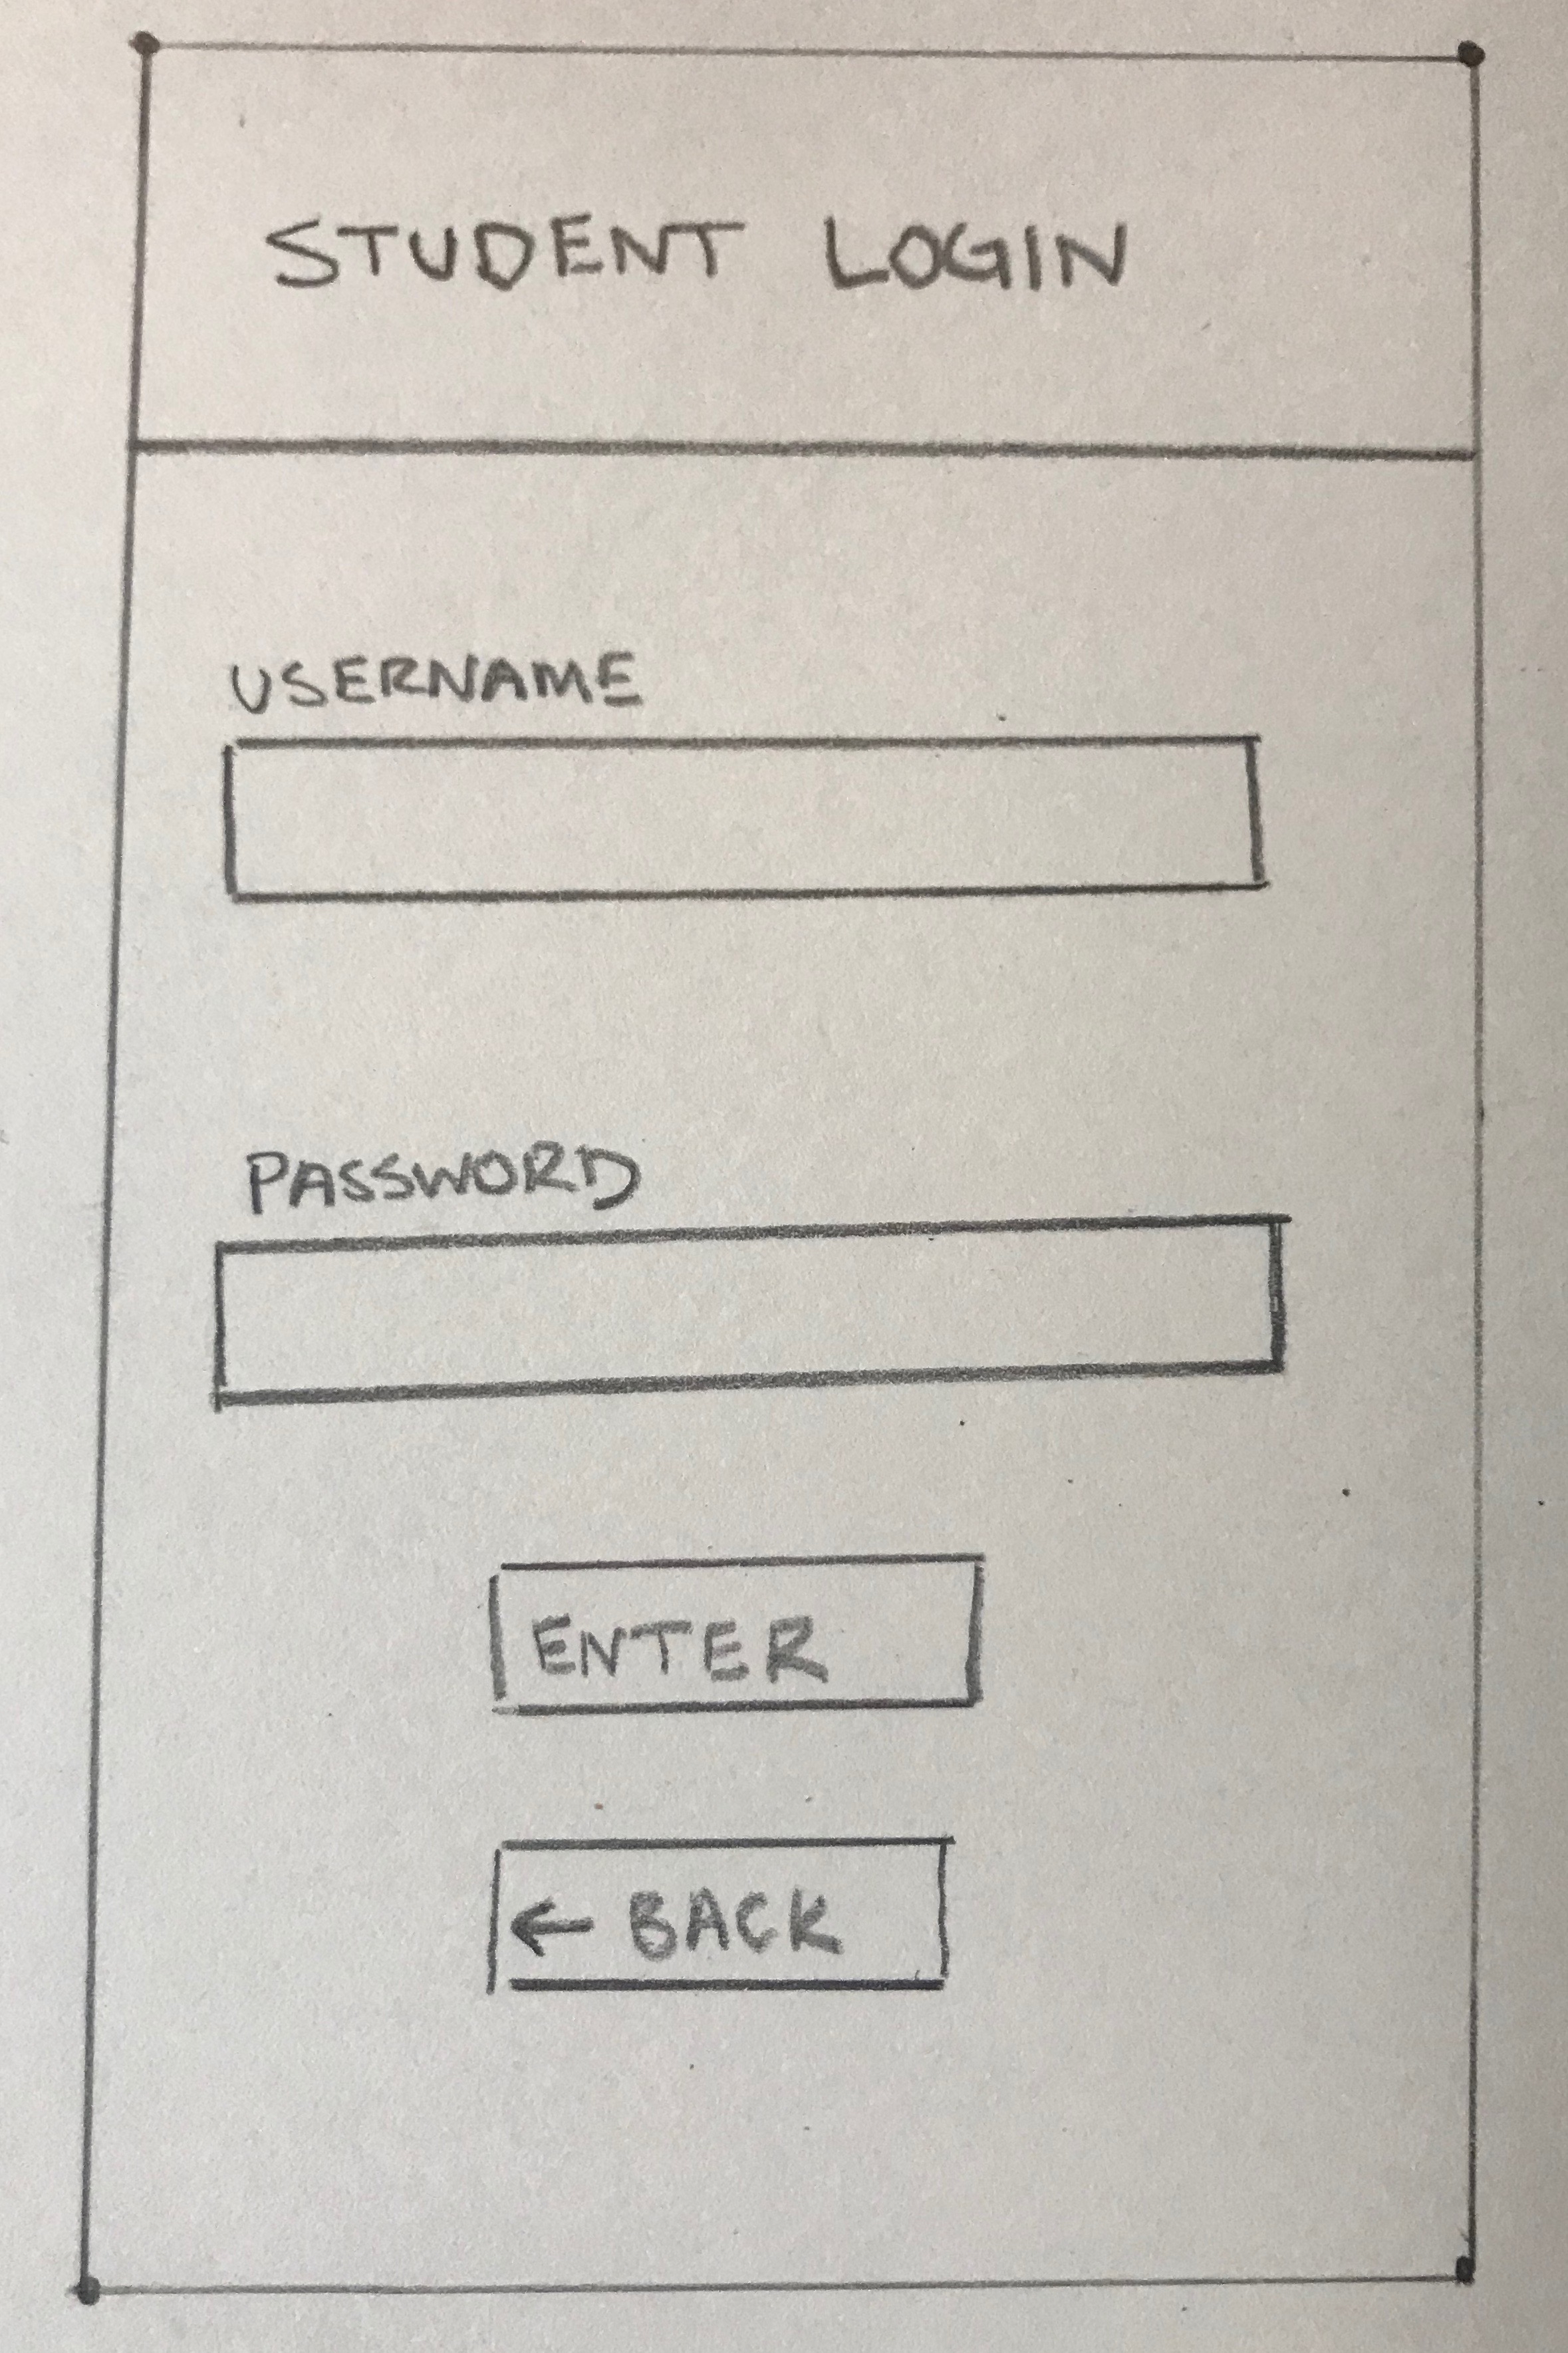 STUDENT LOGIN
USERNAME
PASSWORD
ENTER
← BACK